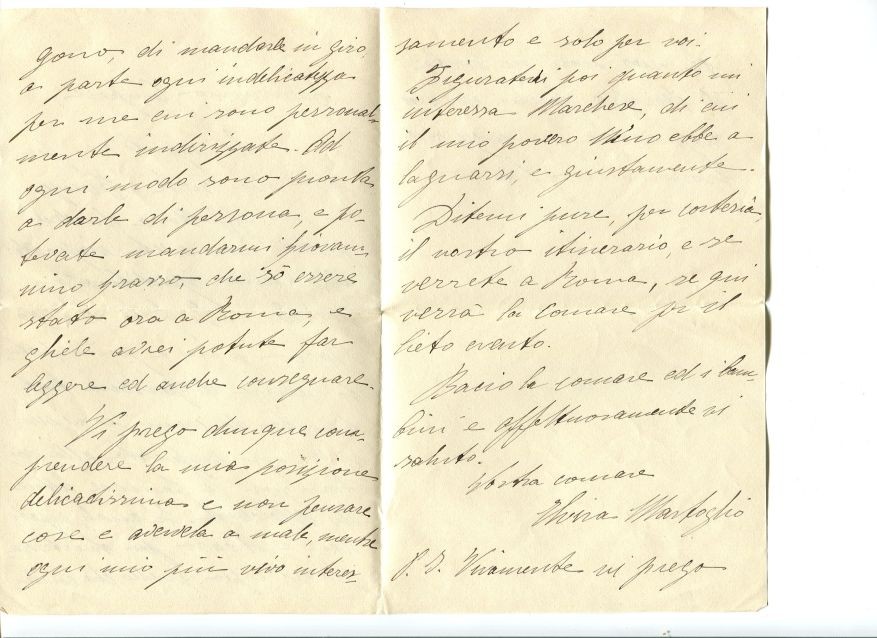 gono, di mandarle in giro,
a parte ogni indelicatezza
per me cui sono personal-
mente indirizzate. Ad
ogni modo sono pronta
a darle di persona e po-
tevate mandarmi Giovan-
nino Grasso, che so essere
stato ora a Roma, e
ghiele avrei potute far
leggere ed anche consegnare.
Vi prego dunque com-
prendere la mia posizione
delicatissima e non pensare
cose e avervela a male, mentre
ogni mio più vivo interes-
samento e solo per voi.
Figuratevi poi quanto mi
interessa Marchese, di cui
il mio povero Nino ebbe a
lagnarsi, e giustamente.
Ditemi pure, per cortesia,
il vostro itinerario, e se
verrete a Roma, se qui
verrà la comare pr il
lieto evento.
Bacio la comare ed i bam-
bini e affettuosamente vi
saluto.
Vostra comare
Elvira Martoglio
P. S. Vivamente vi prego